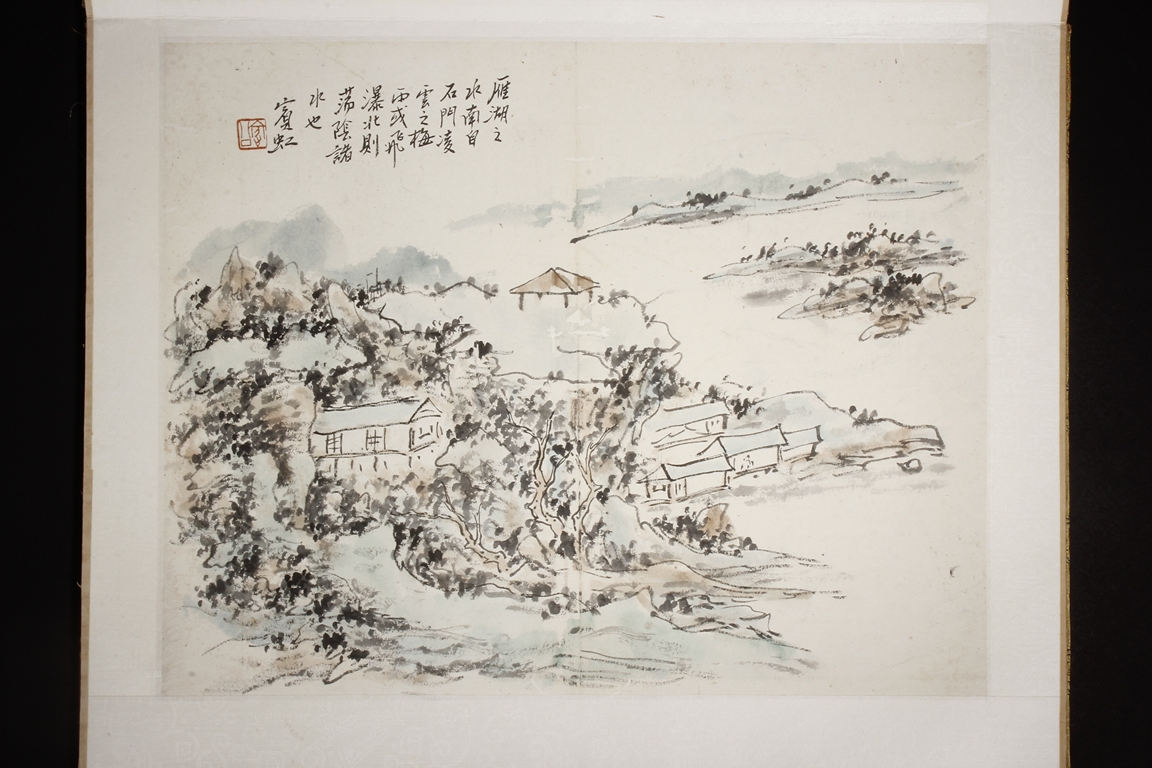 雁湖之
水南自
石門凌
雲之梅
雨或飛
瀑北則
蕩陰諸
水也
賓虹